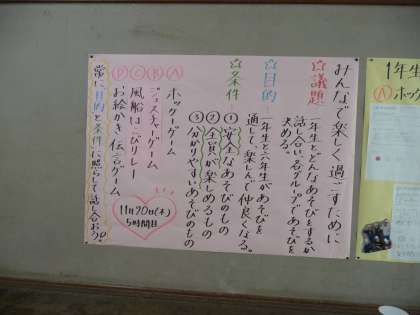 みんなで楽しく過ごすために
☆議題
一年生とどんなあそびをするか
話し合い、各グループであそびを
決める。
☆目的
一年生と六年生があそびを
通して、楽しんで仲良くなる。
☆条件
①安全なあそびのもの
②全員が楽しめるもの
③分かりやすいあそびのもの
Ⓐ ホッケーゲーム
Ⓑ ジェスチャーゲーム
Ⓒ 風船はこびリレー
Ⓓ お絵かき伝言ゲーム
11月20日(木)
5時間目
常に目的と条件に照らして話し合おう。
1年生
Ⓐ ホッ